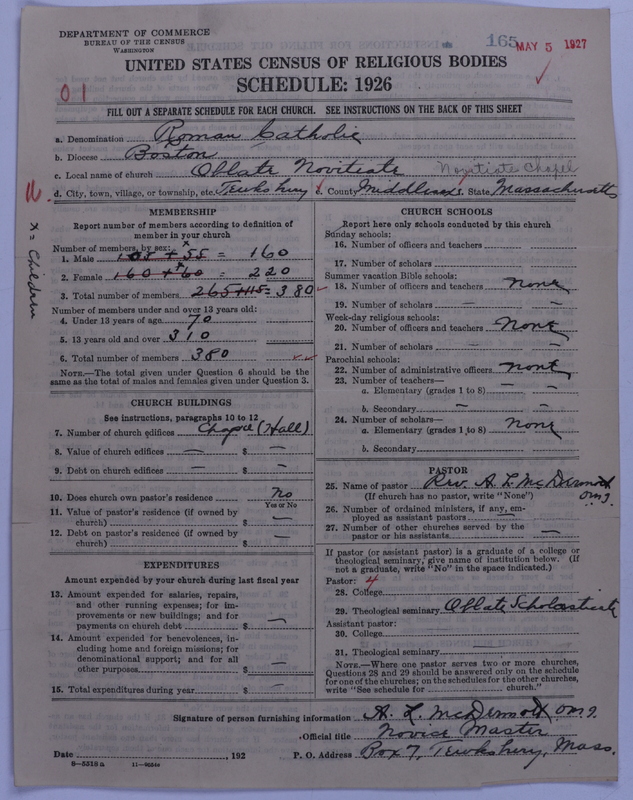 DEPARTMENT OF COMMERCE
BUREAU OF THE CENSUS
WASHINGTON
165
MAY 5 1927
UNITED STATES CENSUS OF RELIGIOUS BODIES
SCHEDULE: 1926
01
FILL OUT A SEPARATE SCHEDULE FOR EACH CHURCH. SEE INSTRUCTIONS ON THE BACK OF THIS SHEET
a. Denomination Roman Catholic
b. Diocese Boston
c. Local name of church Oblate Novitiate Novitiate Chapel
d. City, town, village, or township, etc. Tewksbury e. County Middlesex f. State Massachusetts
x = Children
MEMBERSHIP
Report number of members according to definition of
member in your church
Number of members, by sex:
1. Male 105 + 55 x = 160
2. Female 160 + 60 x = 220
3. Total number of members 265 + 115 = 380
Number of members under and over 13 years old:
4. Under 13 years of age 70
5. 13 years old and over 310
6. Total number of members 380
NOTE.—The total given under Question 6 should be
same as the total of males and females given under Question 3.
CHURCH BUILDINGS
See instructions, paragraphs 10 to 12
7. Number of church edifices Chapel (Hall)
8. Value of church edifices — $ —
9. Debt on church edifices — $ —
10. Does church own pastor's residence No
Yes or No
11. Value of pastor's residence (if owned by
church) $ —
12. Debt on pastor's residence (if owned by
church) $ —
EXPENDITURES
Amount expended by your church during last fiscal year
13. Amount expended for salaries, repairs,
and other running expenses; for im-
provements or new buildings; and for
payments on church debt $ —
14. Amount expended for benevolences, in-
cluding home and foreign missions; for
denominational support; and for all
other purposes $ —
15. Total expenditures during year $ —
CHURCH SCHOOLS
Report here only schools conducted by this church
Sunday schools:
16. Number of officers and teachers
17. Number of scholars
Summer vacation Bible schools:
18. Number of officers and teachers none
19. Number of scholars — —
Week-day religious schools:
20. Number of officers and teachers None
21. Number of scholars — —
Parochial schools:
22. Number of administrative officers none
23. Number of teachers—
a. Elementary (grades 1 to 8) — —
b. Secondary — —
24. Number of scholars—
a. Elementary (grades 1 to 8) none
b. Secondary
PASTOR
25. Name of pastor Rev. A. L. McDermott
(If church has no pastor, write "None") O.M.I.
26. Number of ordained ministers, if any, em-
ployed as assistant pastors —
27. Number of other churches served by the
pastor or his assistants —
If pastor (or assistant pastor) is a graduate of a college or
theological seminary, give name of institution below. (If
not a graduate, write "No" in the space indicated.)
Pastor: 4
28. College
29. Theological seminary Oblate Scholasticate
Assistant pastor:
30. College
31. Theological seminary
NOTE.—Where one pastor serves two or more churches,
Questions 28 and 29 should be answered only on the schedule
for one of the churches; on the schedules for the other churches,
write "See schedule for church."
Signature of person furnishing information A. L. McDermott O.M.I.
Official title Novice Master
Date , 192 P. O. Address Box 7, Tewksbury, Mass.
8—5318 a